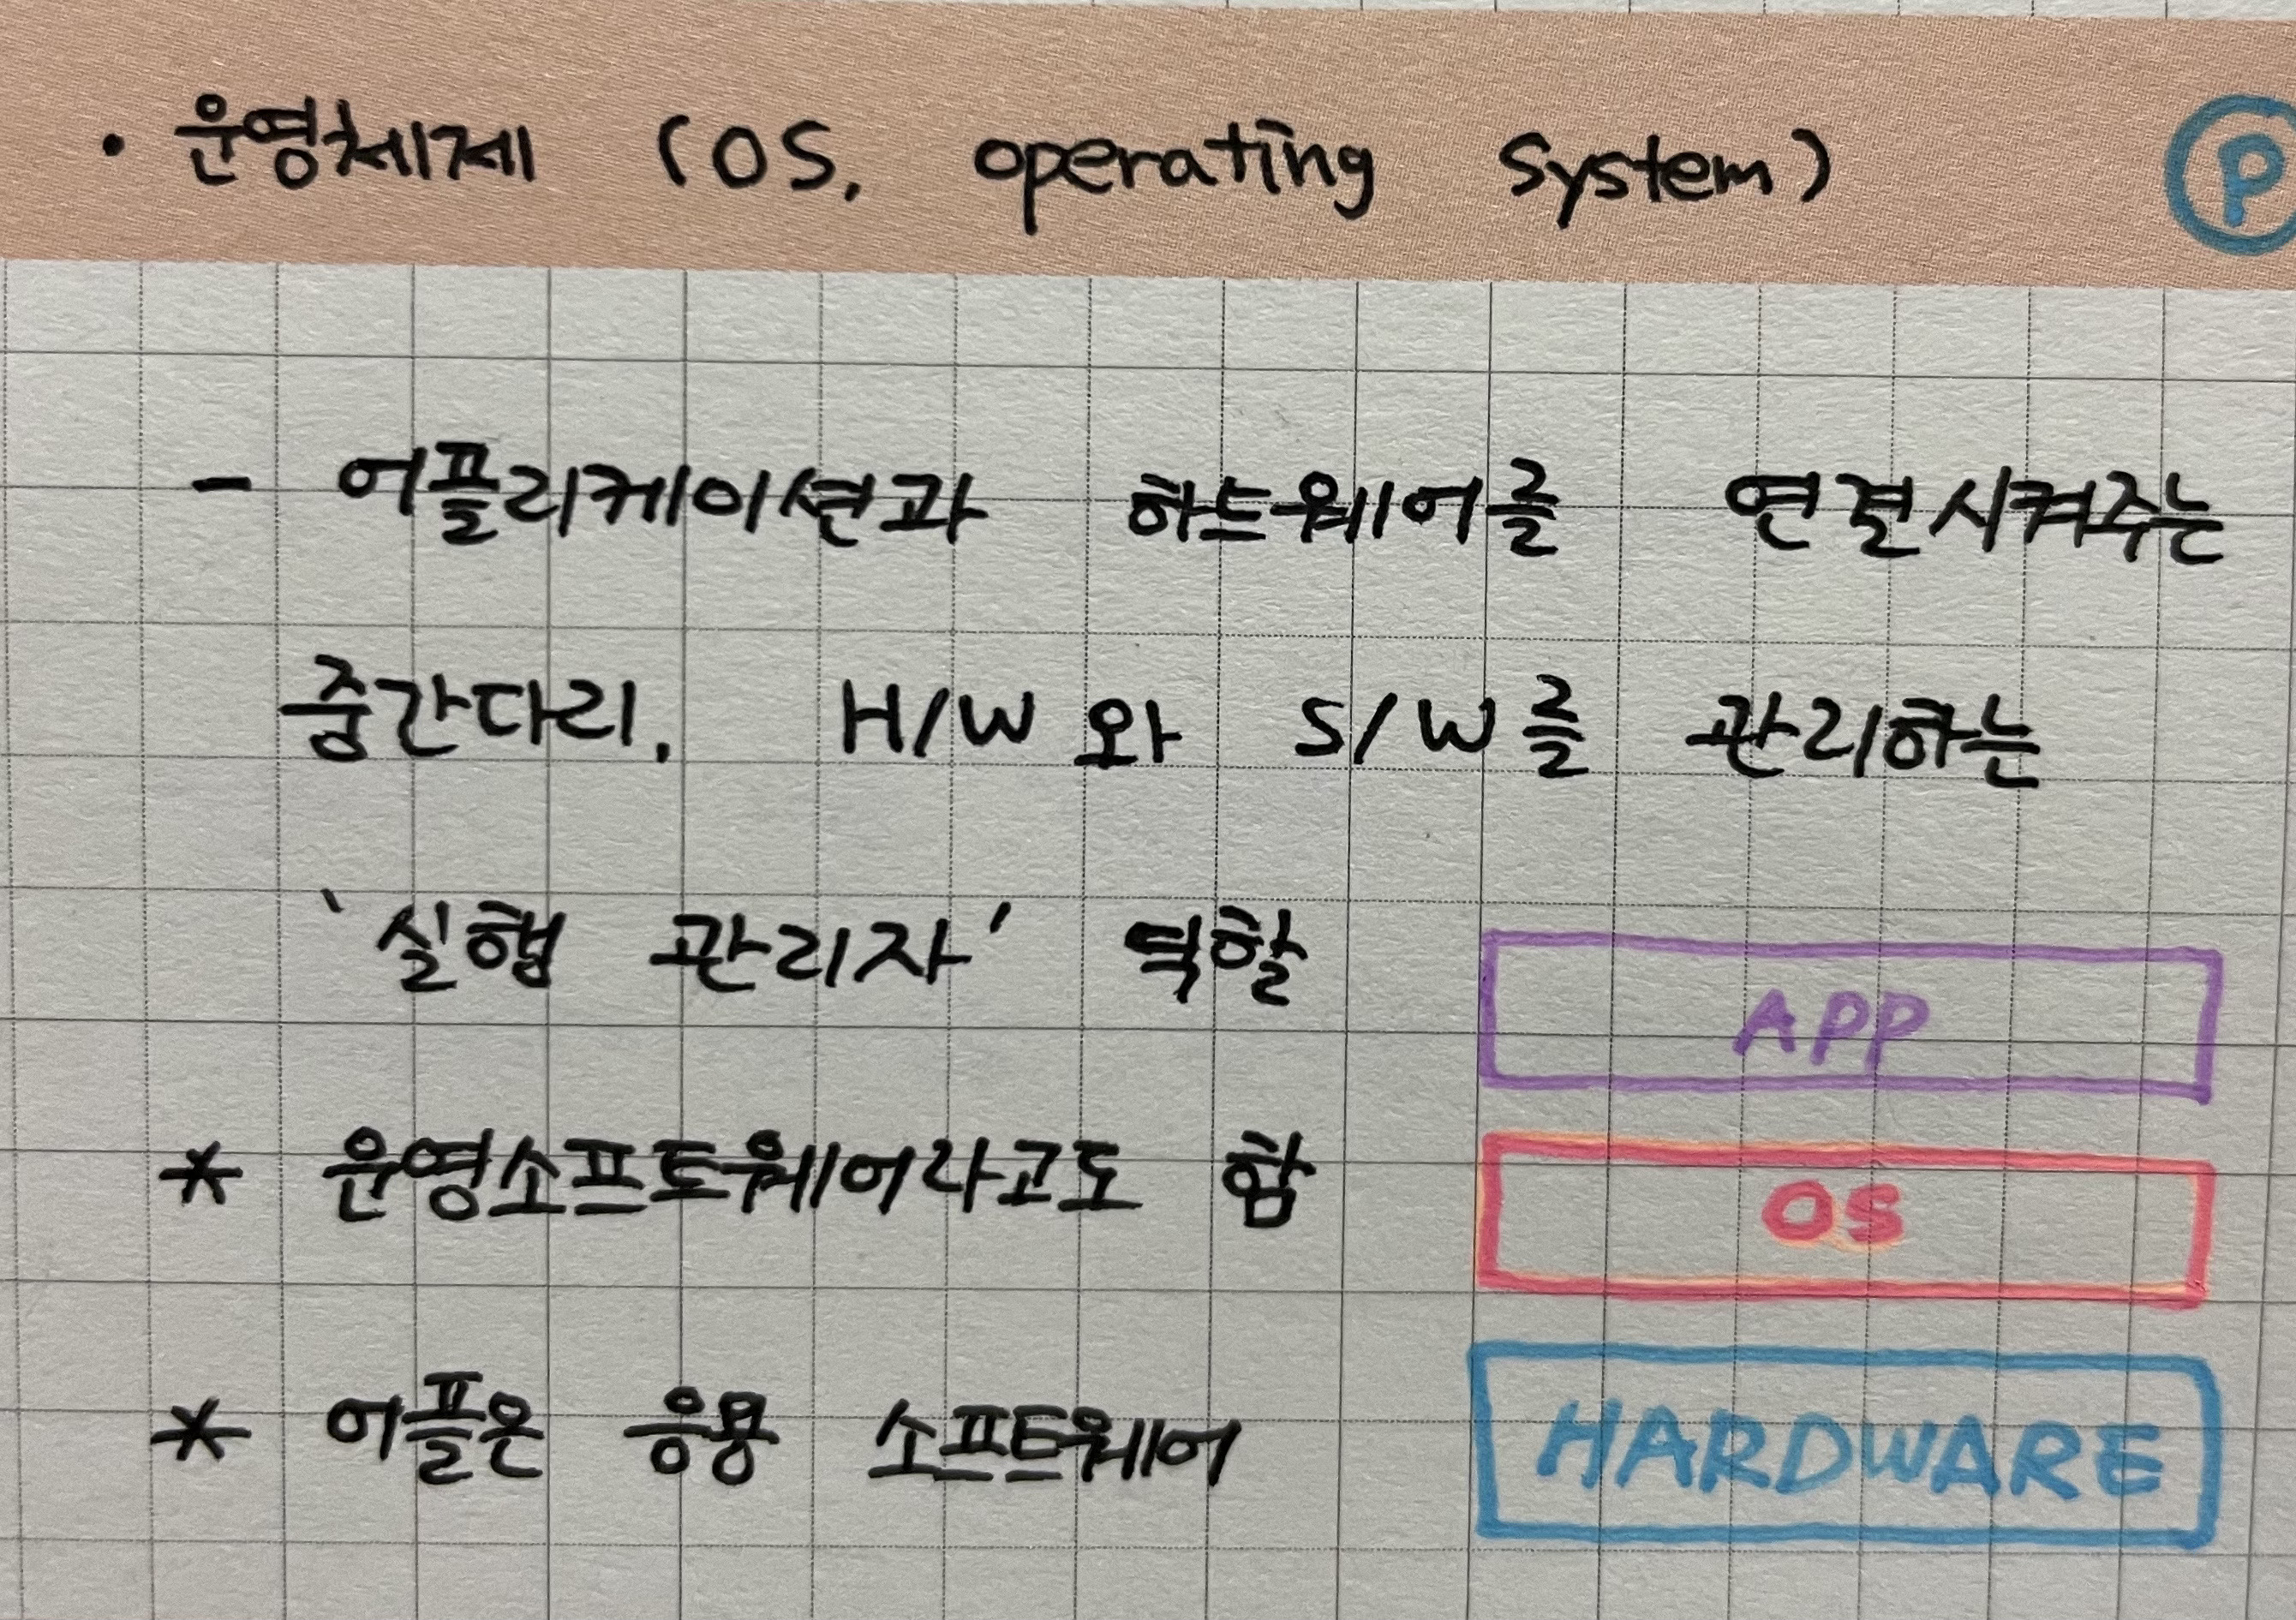 • 운영체제 (OS, operating system) P
- 어플리케이션과 하드웨어를 연결시켜주는
중간다리. H/W 와 S/W를 관리하는
'실행 관리자' 역할
* 운영소프트웨어라고도 함
* 어플은 응용 소프트웨어
APP
OS
HARDWARE